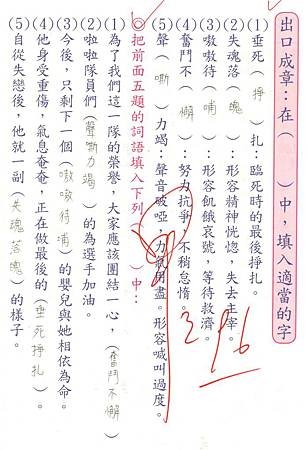 出口成章：在（　）中，填入適當的字
(1)垂死（掙）扎：臨死時的最後掙扎。
(2)失魂落（魄）：形容精神恍惚，失去主宰。
(3)嗷嗷待（哺）：形容飢餓哀號，等待救濟。
(4)奮鬥不（懈）：努力抗爭，不稍怠惰。
(5)聲（嘶）力竭：聲音破啞，力氣用盡。形容喊叫過度。
◎把前面五題的詞語填入下列（　）中：
(1)為了我們這一隊的榮譽，大家應該團結一心，（奮鬥不懈）
(2)啦啦隊員們（聲嘶力竭）的為選手加油。
(3)今後，只剩下一個（嗷嗷待哺）的嬰兒與她相依為命。
(4)他身受重傷，氣息奄奄，正在做最後的（垂死掙扎）。
(5)自從失戀後，他就一副（失魂落魄）的樣子。
96